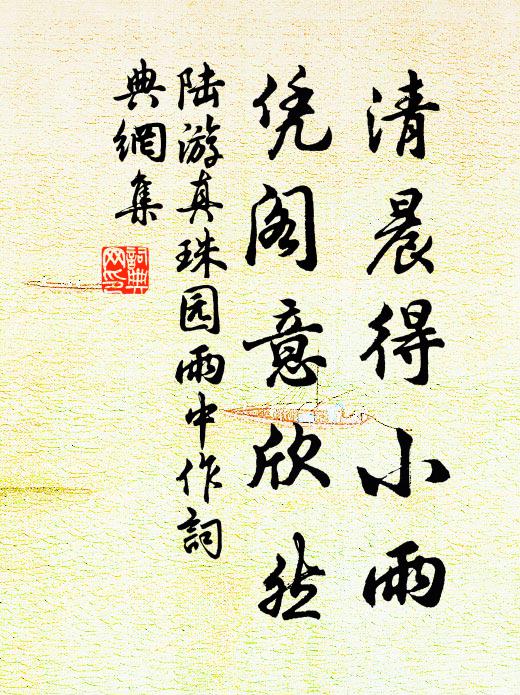 清晨得小雨
凭阁意欣然
陆游真珠园雨中作词
典網集
詞典
网印